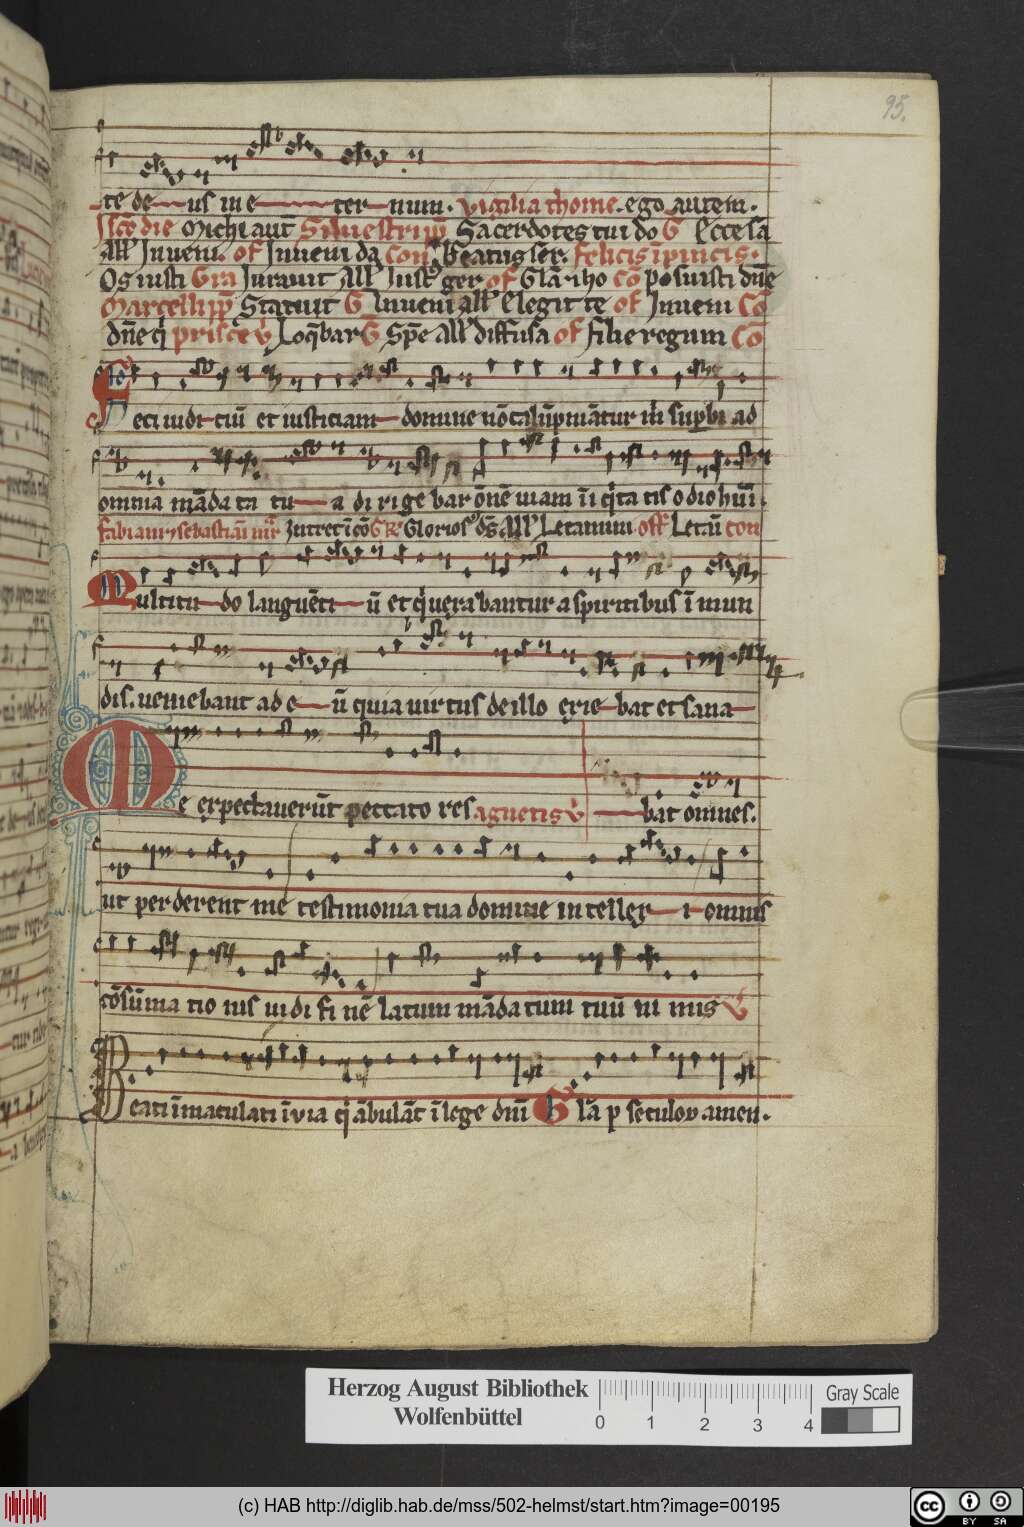 95.
te de us in e ter num. vigilia thome. ego autem.
Iſtē die Michi aut̄ Silueſtri pp̄ Sacerdotes tui do G̅ Ecce ſa
all' Inueni. of Inueni da Con Beatus ſer. felicis ī pincis.
Os iusti Gra Iurauit all' Iuſt⁹ ger of Glā. iħo cō poſuiſti dn̄e
Marcelli pp̄ Statuit G̅ Inueni all' Elegit te of Inueni Cō
dn̄e q̄ priſce v̄ Loq̄bar G̅ Spe all' diffuſa of filie regum Cō
Feci iudi ciū et iuſticiam domine nō calūpniātur m̄ ſuꝑbi ad
omnia māda ta tu a di rige bar ōnē uiam īi q̄ta tis odio hūi.
fabiani ⁊ ſebaſtiāi mr̄ Intret ī cō G̅ Glorioſ⁹ d̄s All' Letamini off Letāi con
Multitu do languēti ū et q̄ uexabantur a ſpiritibus ī mun
dis. ueniebant ad e ū quia uirtus de illo exie bat et ſana
Me expectauerūt peccato res agnetis v̄ bat omnes.
ut perderent me teſtimonia tua domine intellex i omnis
cōſūma tio nis uidi fi nē latum māda tum tuū ni mis v̄
Beati īmaculati ī via q̄ ābulāt ī lege dn̄i Glā p ſeculoꝝ amen.
Herzog August Bibliothek
Wolfenbüttel
0 1 2 3 4
Gray Scale
(c) HAB http://diglib.hab.de/mss/502-helmst/start.htm?image=00195
cc BY SA